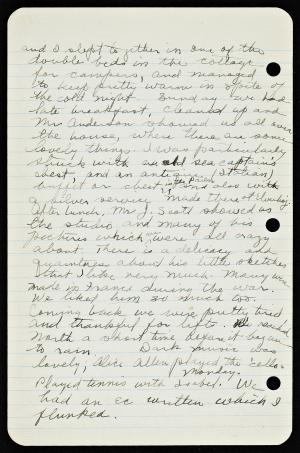 and I slept together in one of the
double beds in the cottage
for campers, and managed
to keep pretty warm in spite of
the cold night. Sunday we had
late breakfast, cleaned up and
Mrs Anderson showed us all over
the house, where there are some
lovely things. I was particularly
struck with an old sea captain's
chest, and an antique (Italian)
buffet or chest and also with
a silver service made there
After lunch, Mr. J. Scott showed us
the studio and many of his
pictures which we were all crazy
about. There is a delicacy and
quaintness about his little sketches
that I like very much. Many were
made in France during the war.
We liked him so much too.
Coming back we were pretty tired
and thankful for lifts. We reached
North a short time before it began
to rain. Dark music was
lovely, Alice Allen played the 'cello.
Monday.
Played tennis with Isabel. We
had an ec written which I
flunked.